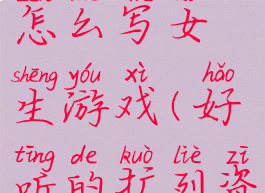 怎么写女
shēng yóu xì hǎo
生游戏(好
tīng de kuò liè zī
听的扩列资